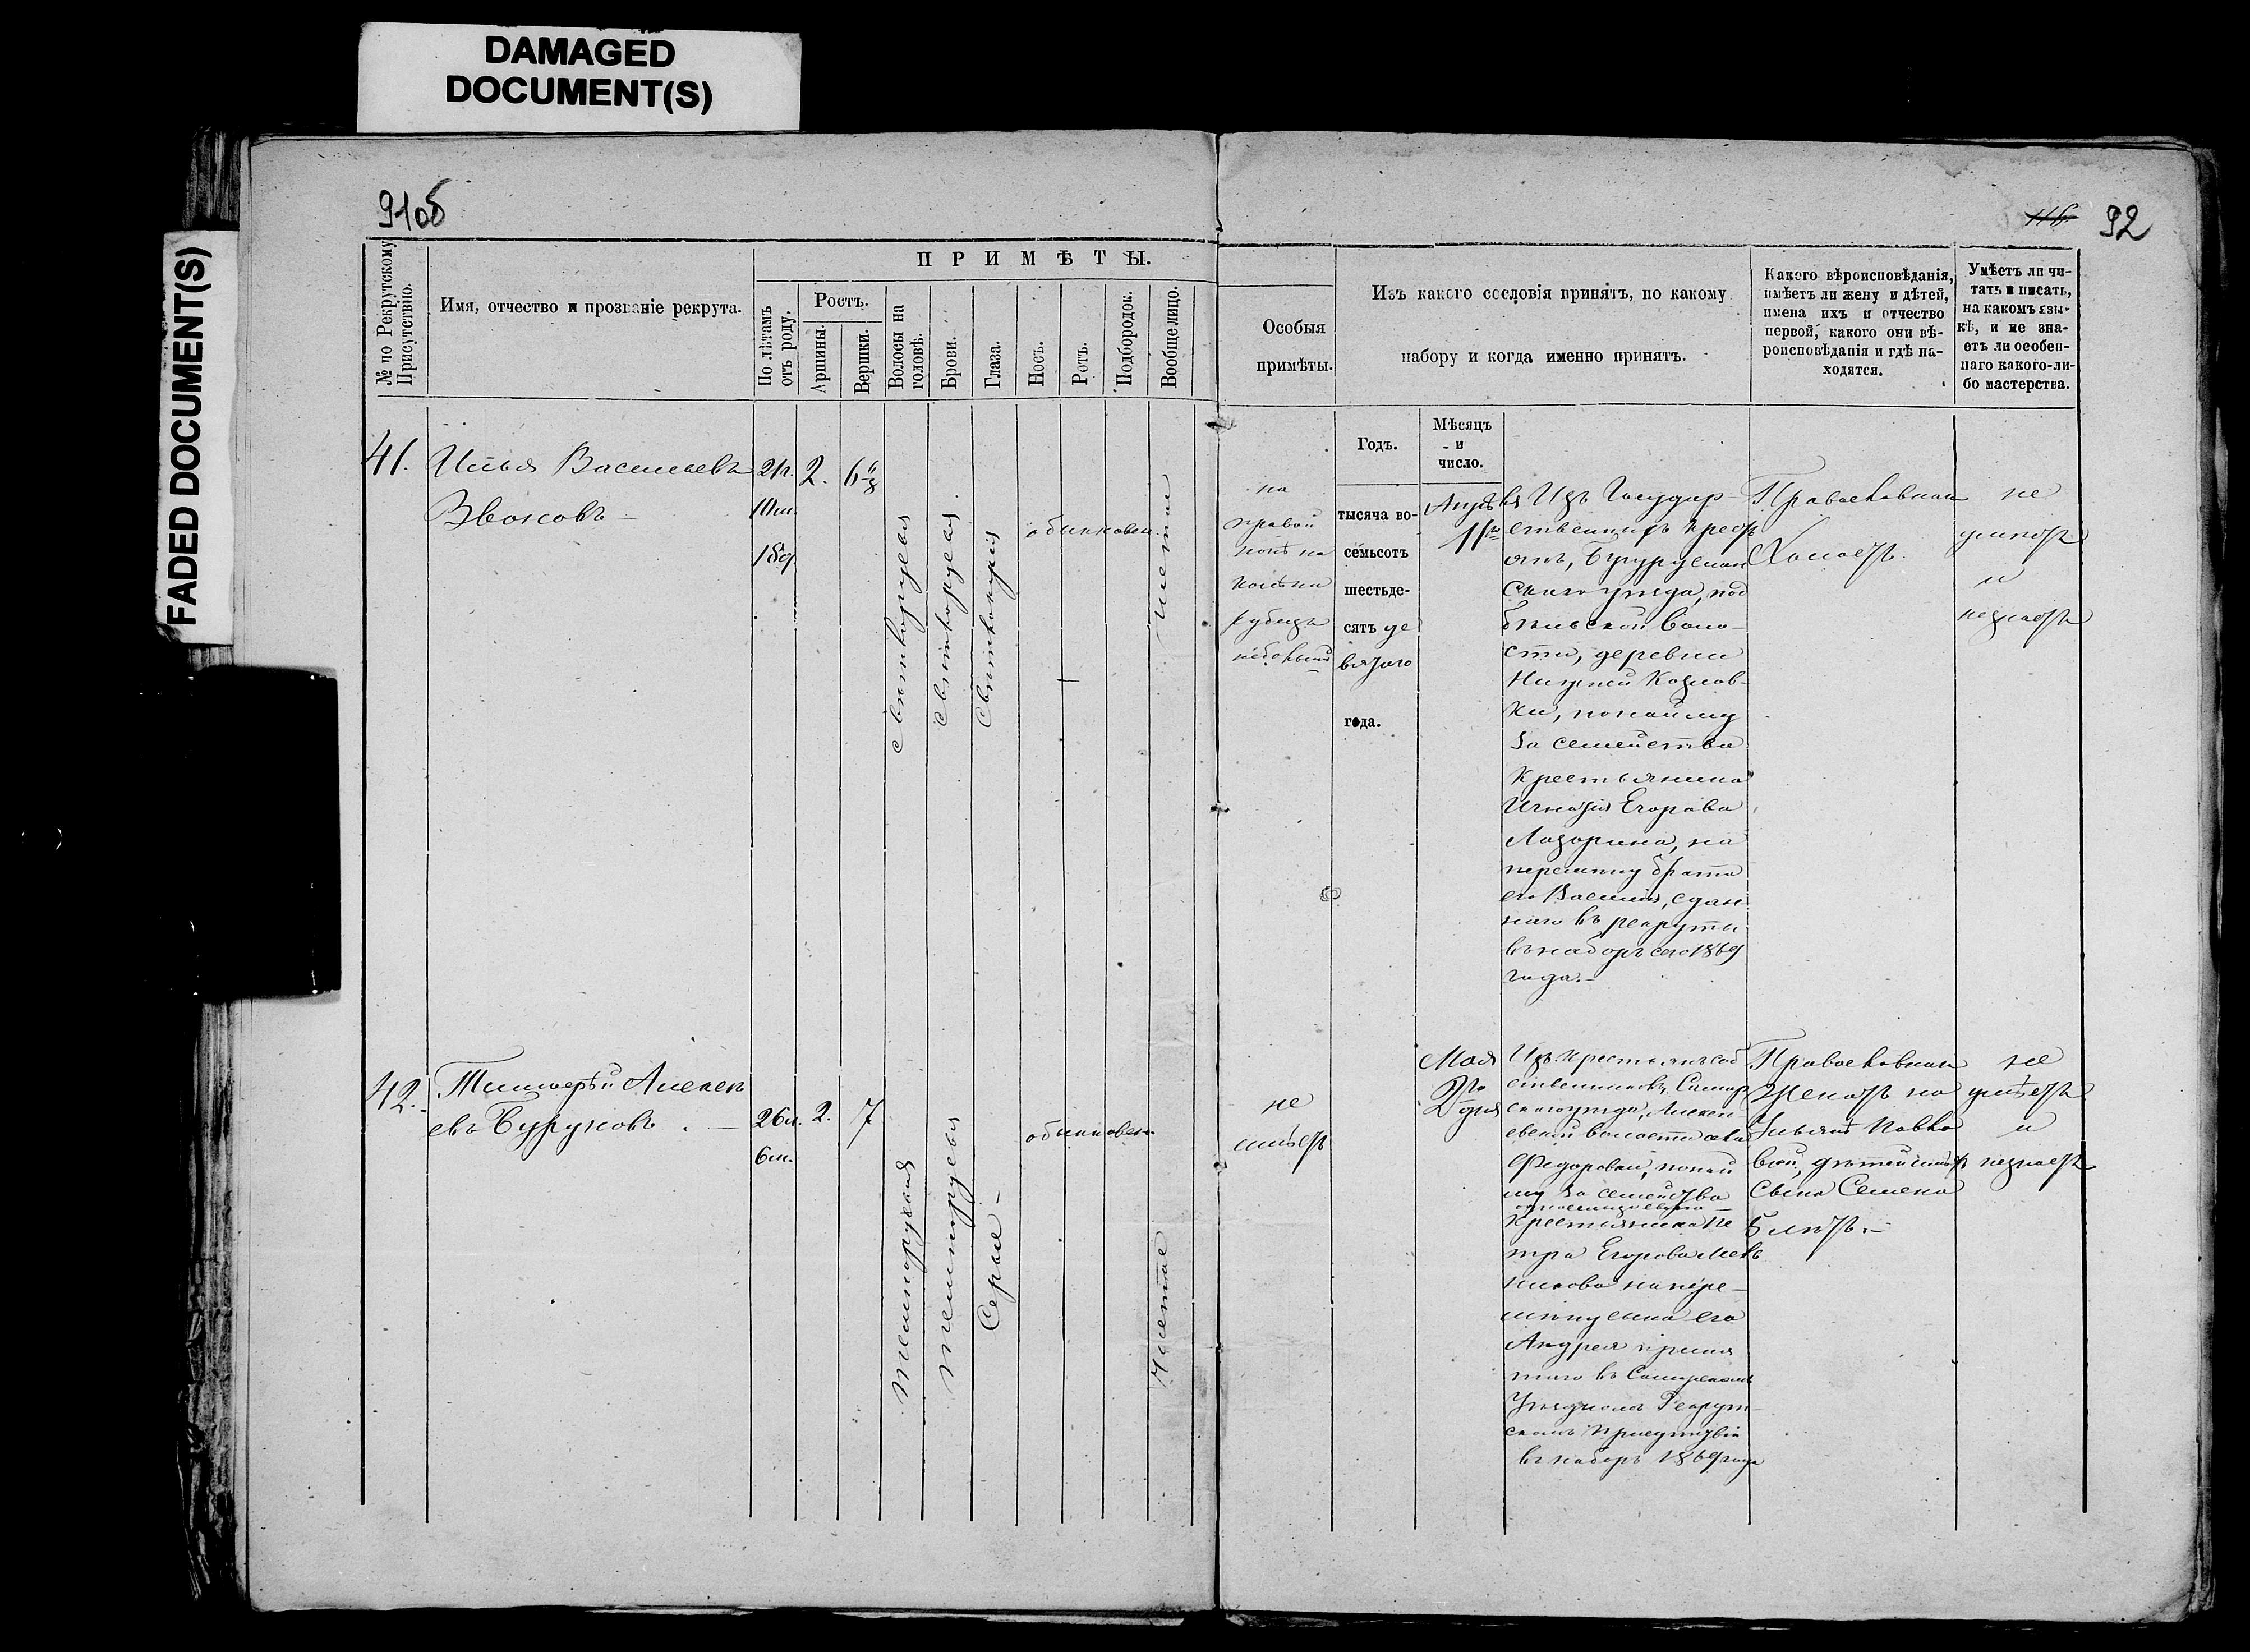 DAMAGED
DOCUMENT(S)
FADED DOCUMENT(S)
91об
116
92
№ по Рекрутскому
Присутствію.
Имя, отчество и прозваніе рекрута.
ПРИМѢТЫ.
По лѣтамъ
отъ роду.
Ростъ.
Аршины.
Вершки.
Волосы на
головѣ.
Брови.
Глаза.
Носъ.
Ротъ.
Подбородок.
Вообще лицо.
Особыя
примѣты.
Изъ какого сословія принятъ, по какому
набору и когда именно принятъ.
Какого вѣроисповѣданія,
имѣетъ ли жену и дѣтей,
имена ихъ и отчество
первой, какого они вѣ-
роисповѣданія и гдѣ на-
ходятся.
Умѣетъ ли чи-
тать и писать,
на какомъ язы-
кѣ, и не зна-
етъ ли особен-
наго какого-ли-
бо мастерства.
Годъ.
Мѣсяцъ
и
число.
41.
Илья Васильевъ
Звоновъ
21г.
10м.
18д.
2.
6
свѣтлорусыя
свѣтлорусыя
обыкновен.
чистое
на
правой
ногѣ на
колѣна
рубецъ
тысяча во-
семьсотъ
шестьде-
сятъ де
вятаго
года.
Апрѣля
11
Изъ Государ-
ственныхъ крест
янъ, Бугуруслан
скаго уѣзда, под
бѣльской воло-
сти, деревни
Нижней Козлов-
ки, по найму
за семейства
крестьянина
Игнатія Егорова
Лазарина, на
перемѣну брата
его Василія, сдан
наго въ рекруты
въ наборъ сего 1869
года.-
Православнаго
Холостъ.
не
умѣетъ
и
незнаетъ
42.
Тимофѣй Алексѣ
евъ Буруновъ. -
26л.
6м.
2.
7
темнорусыя
темнорусыя
Серые
обыкновен.
Чистое
не
имѣетъ
Мая
2го
дня
Изъ крестьянъ соб
ственниковъ, Самар
скаго уѣзда, Алексѣ
евской волости села
Федоровки, по най
му за семейства
крестьянина Пе
тра Егорова
на пере-
мѣну сына его
Андрея приня
таго въ Самарскомъ
Уѣздномъ Рекрут-
скомъ Присутствіи
въ наборъ 1869 года
Православнаго
Женатъ на
Павло
вой, дѣтей имѣетъ
сына Семена
5 лѣтъ.-
не
умѣетъ
и
незнаетъ